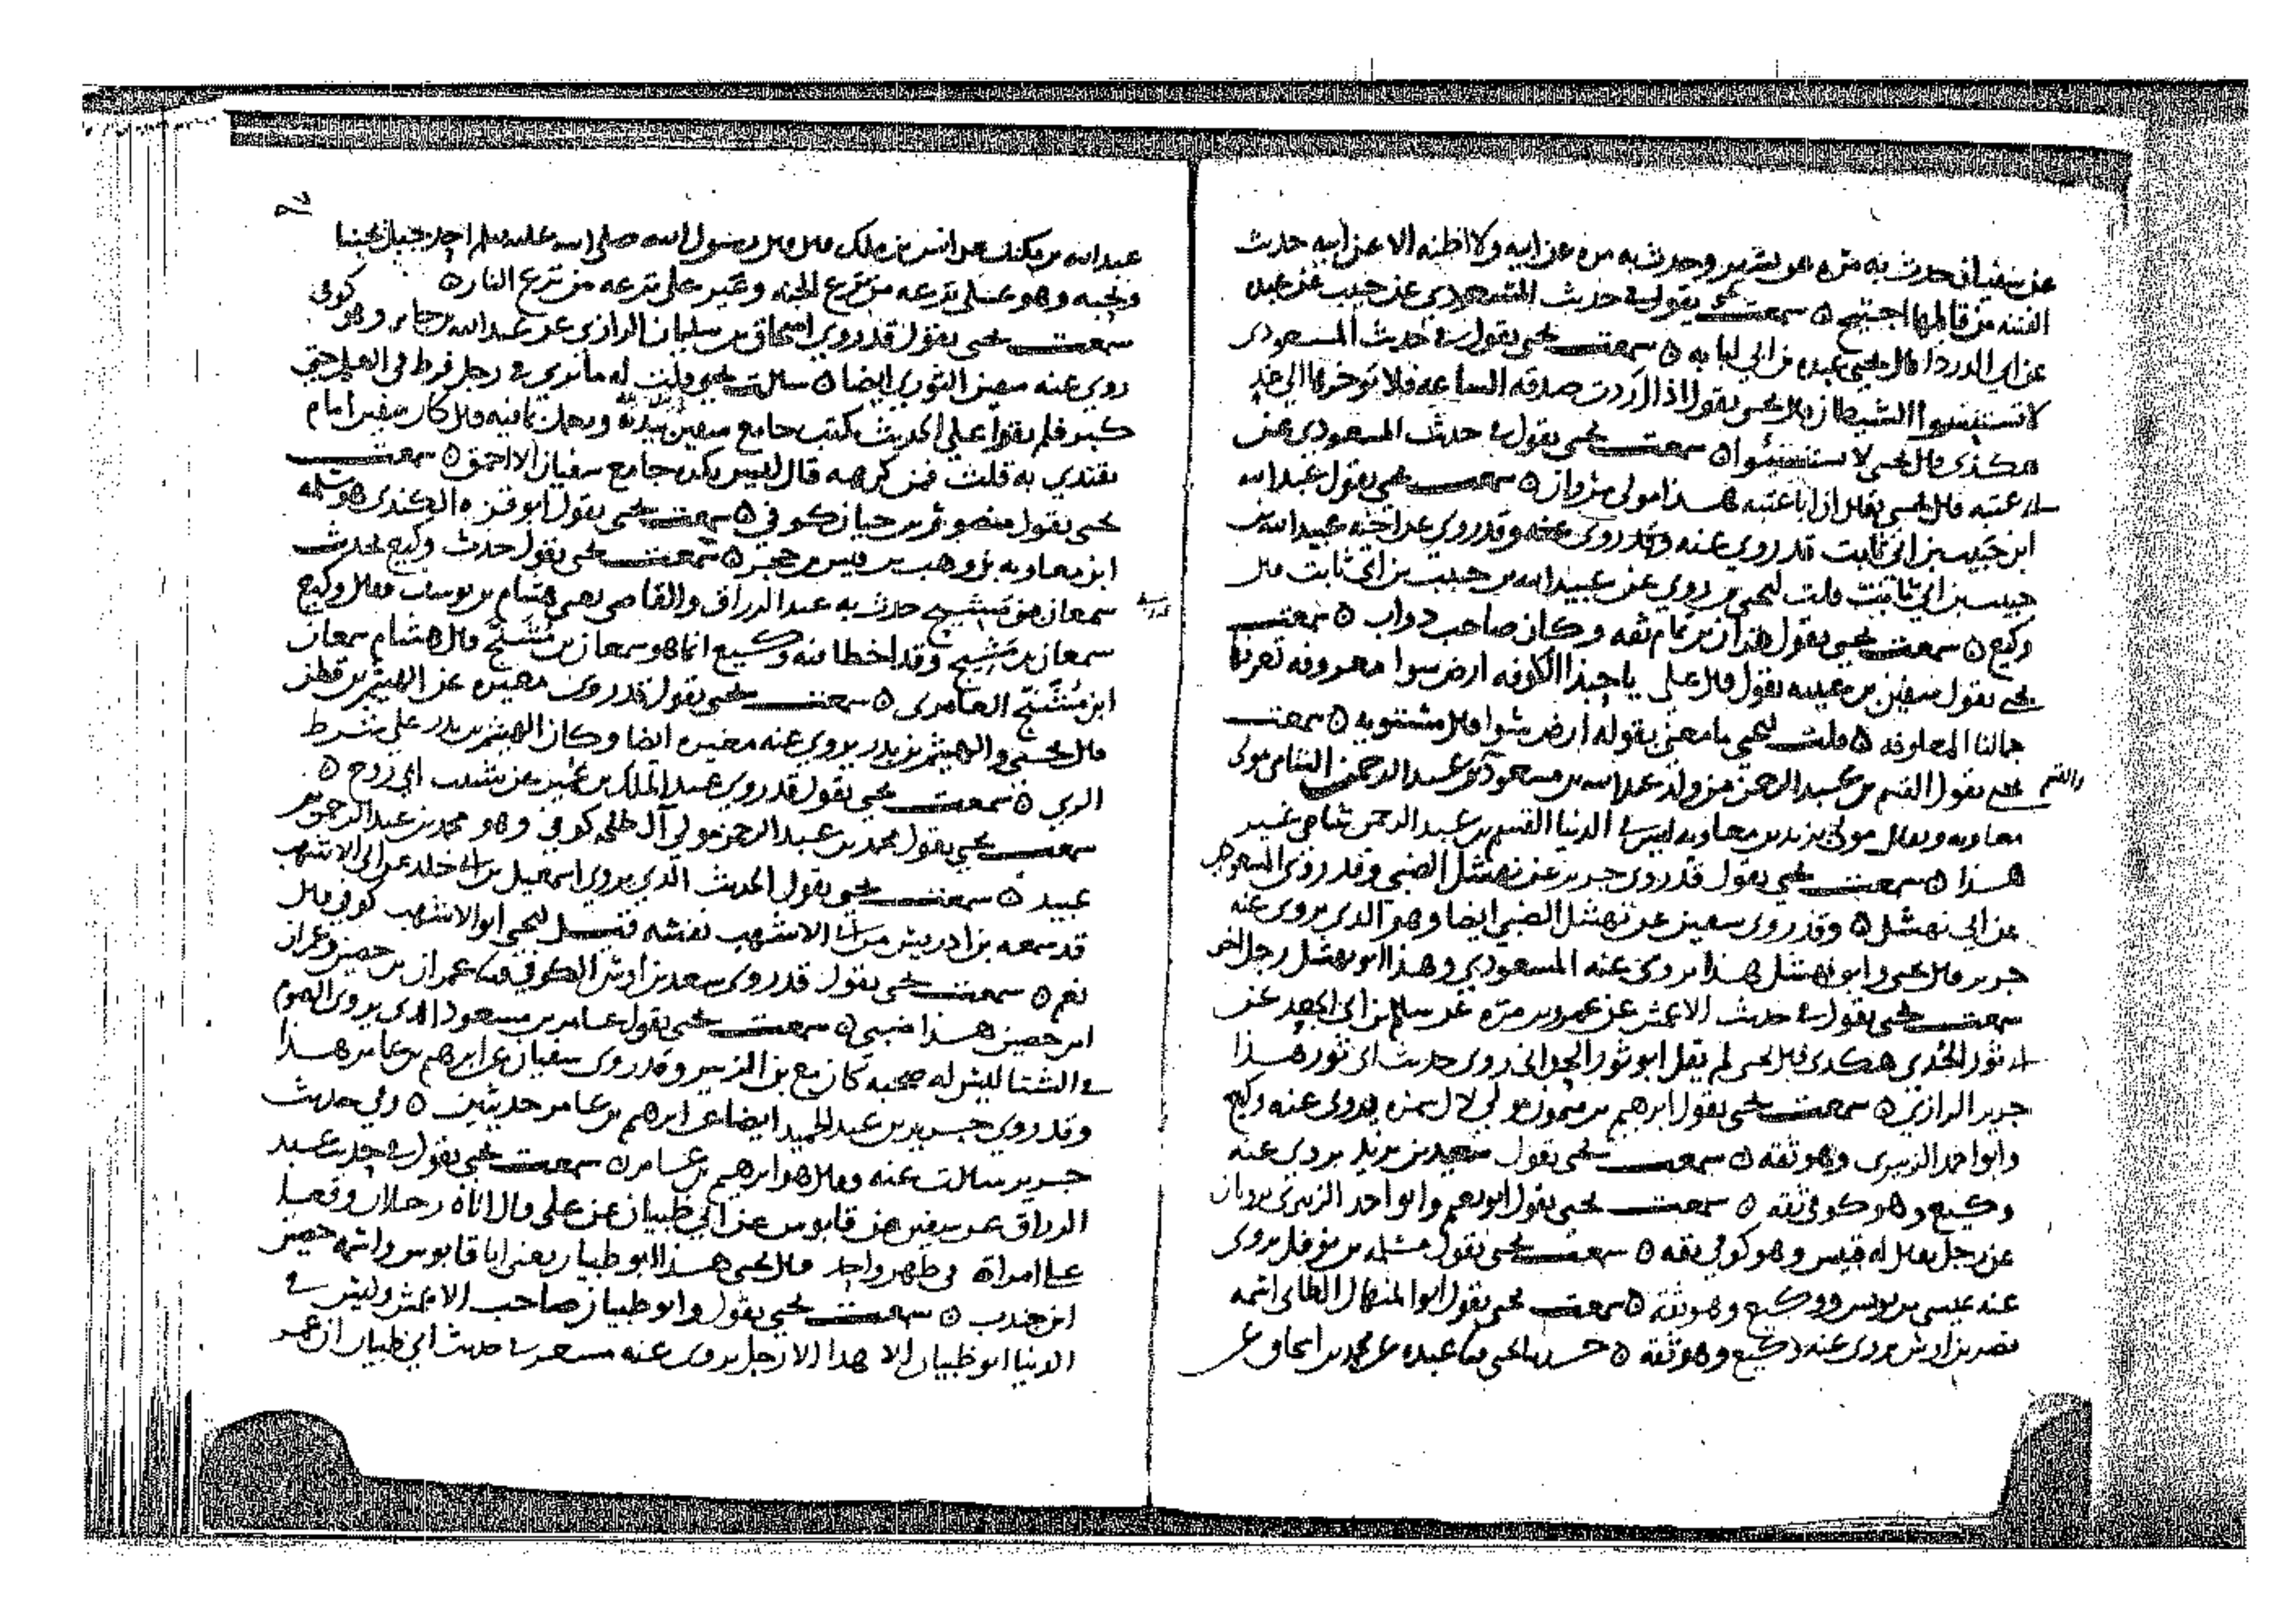 عن سفيان حدث به مرة هو بشير وحدث به مرة عن ابيه ولا اظنه الا عن ابيه حدث
الفتنه من قالها اجتيح ٥ سمعت يحيى يقول في حديث المسعودي عن حبيب عن عبده
عن ابي الدرداء قال يحيى عبده بن ابي لبابه ٥ سمعت يحيى يقول في حديث المسعودي
لا تستنسئوا الشيطان قال يحيى يقول اذا اردت صدقه الساعه فلا توخرها الى غد
هكذى قال يحيى لا تستنسئوا ٥ سمعت يحيى يقول في حديث المسعودي عن
ابي عتبه قال يحيى يقال ان ابا عتبه هذا مولى مروان ٥ سمعت يحيى يقول عبد الله
ابن حبيب بن ابي ثابت قد روى عنه وقد روى عنه وقد روى عن اخيه عبيد الله بن
حبيب بن ابي ثابت قلت ليحيى من روى عن عبيد الله بن حبيب بن ابي ثابت قال
وكيع ٥ سمعت يحيى يقول هذان بن تمام ثقه وكان صاحب دواب ٥ سمعت
يحيى يقول سفين بن عيينه يقول قال علي يا حبذا الكوفه ارض سوا معروفه تعرفها
جمالنا المعلوفه ٥ قلت ليحيى ما معنى قوله ارض سوا قال مستويه ٥ سمعت
يحيى يقول القسم بن عبد الرحمن من ولد عبد الله بن مسعود بن عبد الرحمن الشامي مولى
والقسم
معاويه ويقال مولى يزيد بن معاويه ليس في الدنيا القسم بن عبد الرحمن شامي غير
هذا ٥ سمعت يحيى يقول قد روى جرير عن نهشل الضبي وقد روى المسعودي
عن ابي نهشل ٥ وقد روى سفين عن نهشل الضبي ايضا وهو الذي يروي عنه
جرير قال يحيى وابو نهشل هذا يروي عنه المسعودي وهذا ابو نهشل رجل اخر
سمعت يحيى يقول في حديث الاعمش عن عمرو بن مره عن سالم بن ابي الجعد عن
ابي ثور الحداني هكذى قال يحيى لم يقل ابو ثور الحداني روى حديث ابي ثور هذا
جرير الرازي ٥ سمعت يحيى يقول ابرهيم بن ميمون مولى لال سمره يروي عنه وكيع
وابو احمد الزبيري وهو ثقه ٥ سمعت يحيى يقول سعيد بن يزيد يروي عنه
وكيع وهو كوفي ثقه ٥ سمعت يحيى يقول ابو نعيم وابو احمد الزبيري يرويان
عن رجل يقال له قيس وهو كوفي ثقه ٥ سمعت يحيى يقول مسلم بن نوفل يروي
عنه عيسى بن يونس ووكيع وهو ثقه ٥ سمعت يحيى يقول ابو المنهال الطائي اسمه
نصر بن اوس يروي عنه وكيع وهو ثقه ٥ حدثنا يحيى ثنا عبده عن محمد بن اسحاق عن
عبد الله بن مكنف عن انس بن ملك قال قال رسول الله صلى الله عليه وسلم احد جبل يحبنا
ونحبه وهو على ترعه من ترع الجنه وعير على ترعه من ترع النار ٥
سمعت يحيى يقول قد روى اسحاق بن سليمان الرازي عن عبد الله بن جابر وهو كوفي
روى عنه سفين الثوري ايضا ٥ سالت يحيى قلت له ما ترى في رجل فرط في العلم حتى
كبر فلم يقوا على الحديث كتب جامع سفين بيده ويعمل بما فيه قال كان سفين امام
يقتدي به قلت فمن كرهه قال ليس يكره جامع سفيان الا احمق ٥ سمعت
يحيى يقول منصور بن حيان كوفي ٥ سمعت يحيى يقول ابو قره الكندي هو سلمه
ابن معاويه بن وهب بن قيس بن حجر ٥ سمعت يحيى يقول حدث وكيع بحديث
سمعان بن مشنج حدث به عبد الرزاق والقاضي يعني هشام بن يوسف وقال وكيع
سمعان بن مشنج وقد اخطا فيه وكيع انما هو سمعان بن مشنج قال هشام سمعان
ابن مشنج العامري ٥ سمعت يحيى يقول قد روى مغيره عن الهيثم بن قطن
قال يحيى والهيثم بن بدر يروي عنه مغيره ايضا وكان الهيثم بن بدر على شرط
الري ٥ سمعت يحيى يقول قد روى عبد الملك بن عمير عن شبيب ابي روح ٥
سمعت يحيى يقول محمد بن عبد الرحمن مولى آل طلحه كوفي وهو محمد بن عبد الرحمن بن
عبيد ٥ سمعت يحيى يقول الحديث الذي يروي اسمعيل بن ابي خالد عن ابي الاشهب
قد سمعه بن ادريس من ابي الاشهب نفسه قيل ليحيى ابو الاشهب كوفي قال
نعم ٥ سمعت يحيى يقول قد روى سعد بن اوس الكوفي عمران بن حصين وعمران
ابن حصين هذا ضبي ٥ سمعت يحيى يقول عامر بن مسعود الذي يروي الصوم
في الشتا ليس له صحبه كان مع بن الزبير وقد روى سفيان عن ابرهيم بن عامر هذا
وقد روى جرير بن عبد الحميد ايضا عن ابرهيم بن عامر حديثين ٥ وفي حديث
جرير سالت عنه وقال هو ابرهيم بن عامر ٥ سمعت يحيى يقول في حديث عبد
الرزاق عن سفين عن قابوس عن ابي ظبيان عن علي قال اتاه رجلان وقعا
على امراة في طهر واحد قال يحيى هذا ابو ظبيان يعني ابا قابوس واسمه حصين
ابن جندب ٥ سمعت يحيى يقول وابو ظبيان صاحب الاعمش وليس في
الدنيا ابو ظبيان الا هذا الا رجل يروي عنه مسعر في حديث ابي ظبيان ان عمر